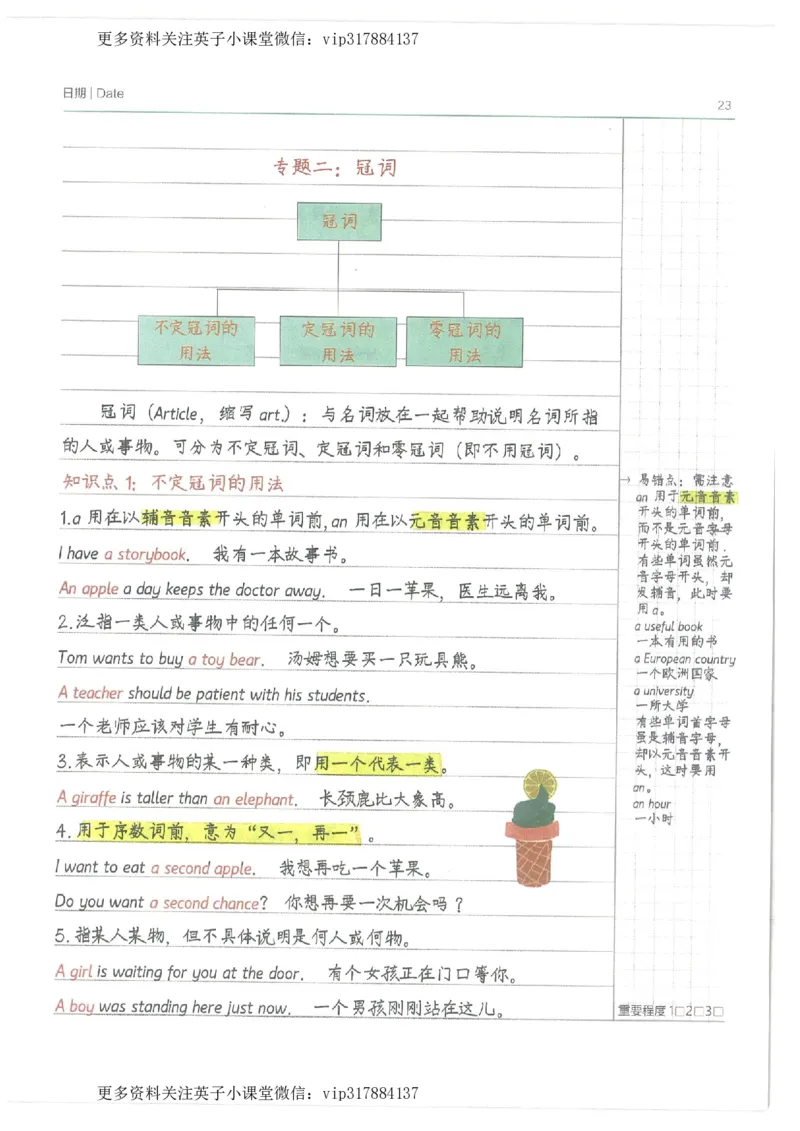 更多资料关注英子小课堂微信：vip317884137
日期 | Date
23
专题二：冠词
冠词
不定冠词的
用法
定冠词的
用法
零冠词的
用法
冠词（Article，缩写 art.）：与名词放在一起帮助说明名词所指
的人或事物。可分为不定冠词、定冠词和零冠词（即不用冠词）。
知识点1：不定冠词的用法
1.a 用在以辅音音素开头的单词前,an 用在以元音音素开头的单词前。
I have a storybook. 我有一本故事书。
An apple a day keeps the doctor away. 一日一苹果，医生远离我。
2.泛指一类人或事物中的任何一个。
Tom wants to buy a toy bear. 汤姆想要买一只玩具熊。
A teacher should be patient with his students.
一个老师应该对学生有耐心。
3.表示人或事物的某一种类，即用一个代表一类。
A giraffe is taller than an elephant. 长颈鹿比大象高。
4.用于序数词前，意为“又一，再一”。
I want to eat a second apple. 我想再吃一个苹果。
Do you want a second chance? 你想再要一次机会吗？
5.指某人某物，但不具体说明是何人或何物。
A girl is waiting for you at the door. 有个女孩正在门口等你。
A boy was standing here just now. 一个男孩刚刚站在这儿。
→ 易错点：需注意
an 用于元音音素
开头的单词前，
而不是元音字母
开头的单词前.
有些单词虽然元
音字母开头，却
发辅音，此时要
用 a。
a useful book
一本有用的书
a European country
一个欧洲国家
a university
一所大学
有些单词首字母
虽是辅音字母，
却以元音音素开
头，这时要用
an。
an hour
一小时
重要程度 1□2□3□
更多资料关注英子小课堂微信：vip317884137